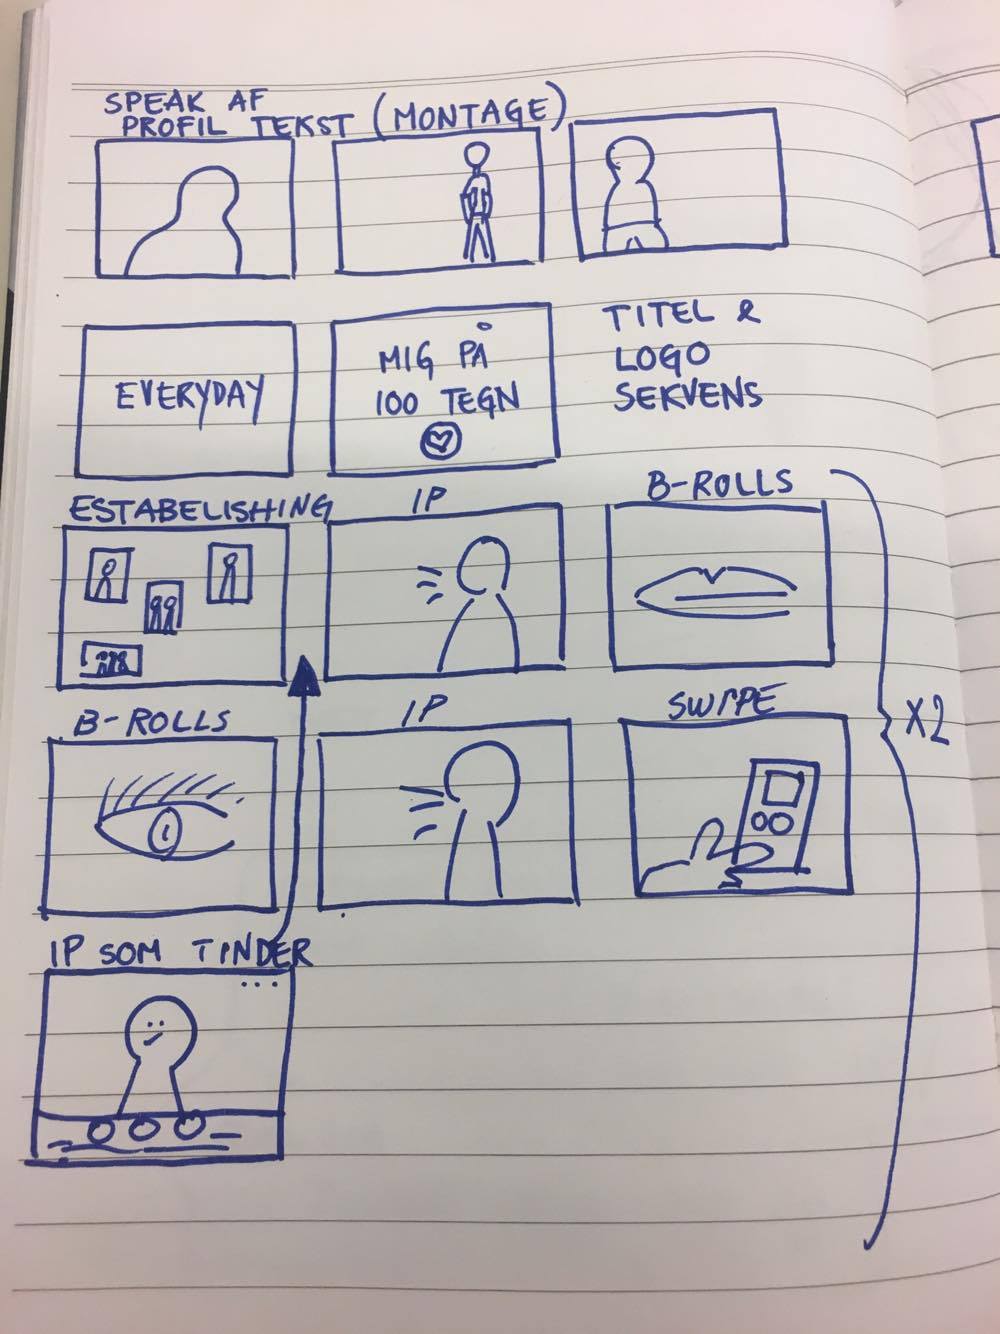 SPEAK AF
PROFIL TEKST (MONTAGE)
EVERYDAY
MIG PÅ
100 TEGN
TITEL &
LOGO
SEKVENS
ESTABELISHING
IP
B-ROLLS
B-ROLLS
IP
SWIPE
X2
IP SOM TINDER